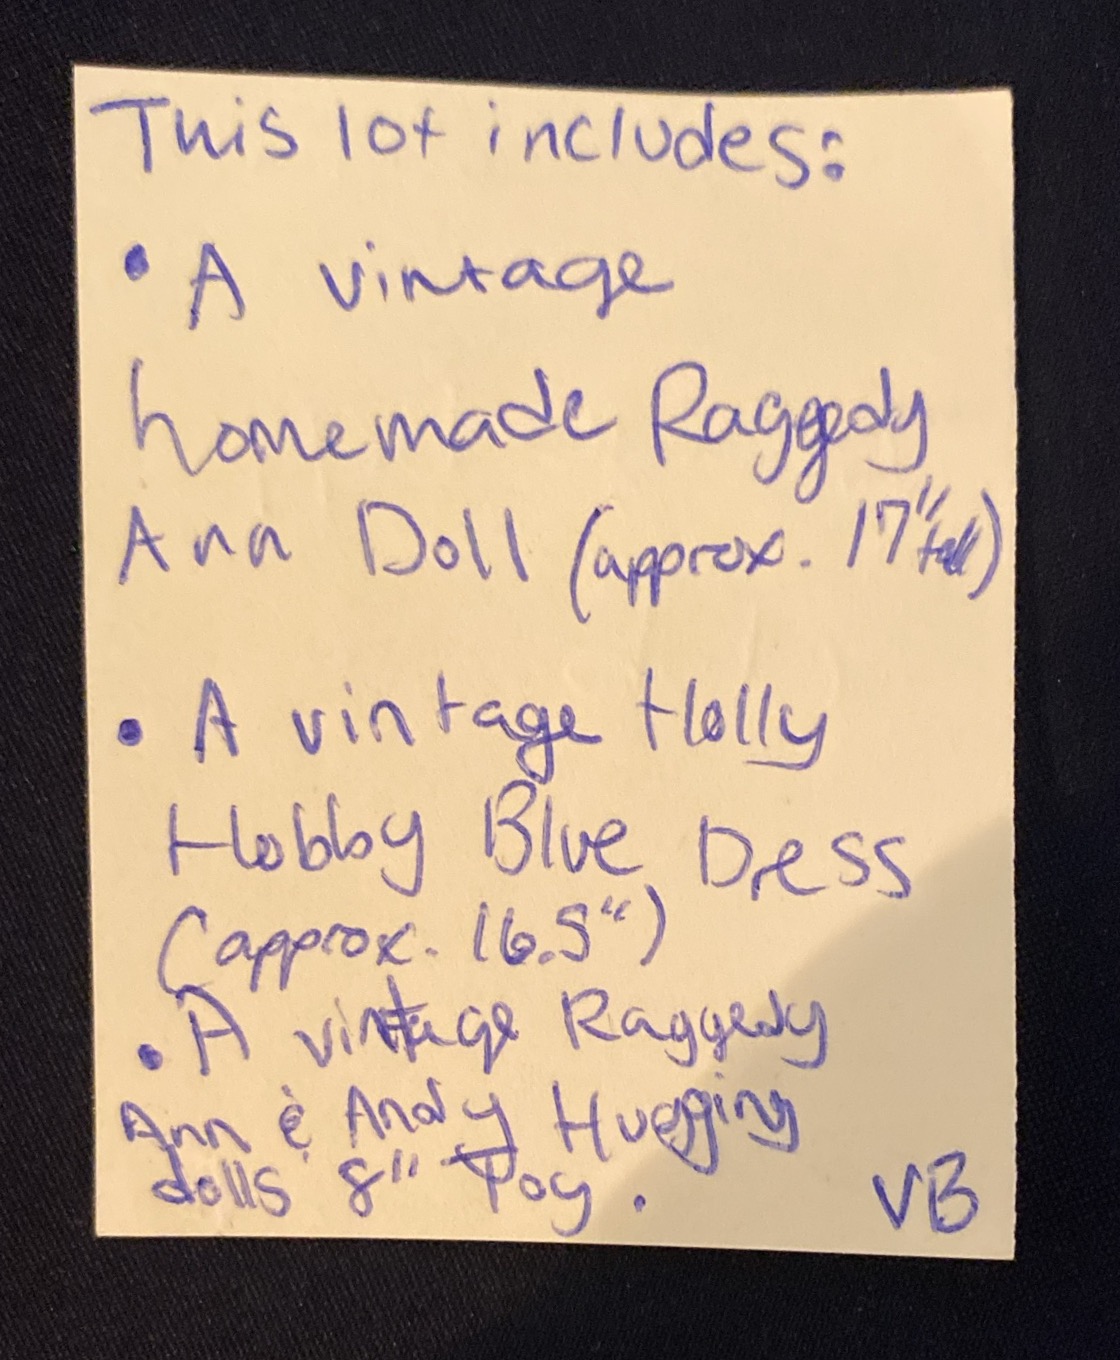 This lot includes:
• A vintage
homemade Raggedy
Ann Doll (approx. 17" tall)
• A vintage Holly
Hobby Blue Dress
(approx. 16.5")
• A vintage Raggedy
Ann & Andy Hugging
dolls 8" Toy.
VB